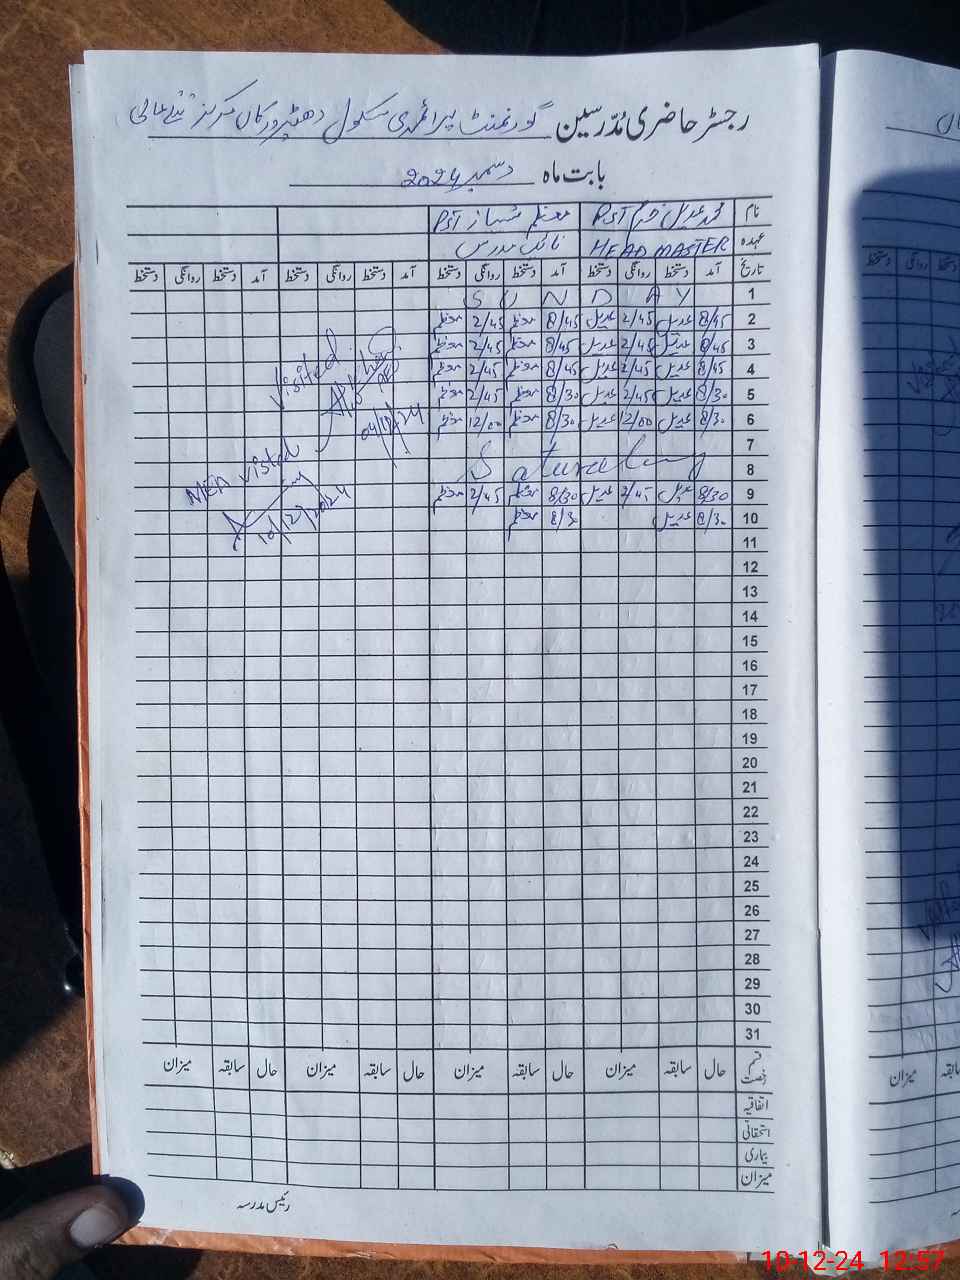 رجسٹر حاضری مُدّرسین گورنمنٹ پرائمری سکول دھپروڑکاں مرکز
بابت ماہ دسمبر 2024
نام محمد عدیل PST معظم شہباز PST
عہدہ HEAD MASTER نائب مدرس
تاریخ آمد دستخط روانگی دستخط آمد دستخط روانگی دستخط آمد دستخط روانگی دستخط آمد دستخط روانگی دستخط
1 SUNDAY
2 8/45 عدیل 2/45 عدیل 8/45 معظم 2/45 معظم
3 8/45 عدیل 2/45 عدیل 8/45 معظم 2/45 معظم
4 8/45 عدیل 2/45 عدیل 8/45 معظم 2/45 معظم
5 8/30 عدیل 2/45 عدیل 8/30 معظم 2/45 معظم
6 8/30 عدیل 12/00 عدیل 8/30 معظم 12/00 معظم
7
Saturday
8
9 8/30 عدیل 2/45 عدیل 8/30 معظم 2/45 معظم
10 8/30 عدیل 8/30 معظم
11
12
13
14
15
16
17
18
19
20
21
22
23
24
25
26
27
28
29
30
31
Visited.
04/12/24
MEA visited
10/12/2024
قسم رخصت حال سابقہ میزان حال سابقہ میزان حال سابقہ میزان حال سابقہ میزان
اتفاقیہ
استحقاقی
بیماری
میزان
رئیس مدرسہ
10-12-24 12:57